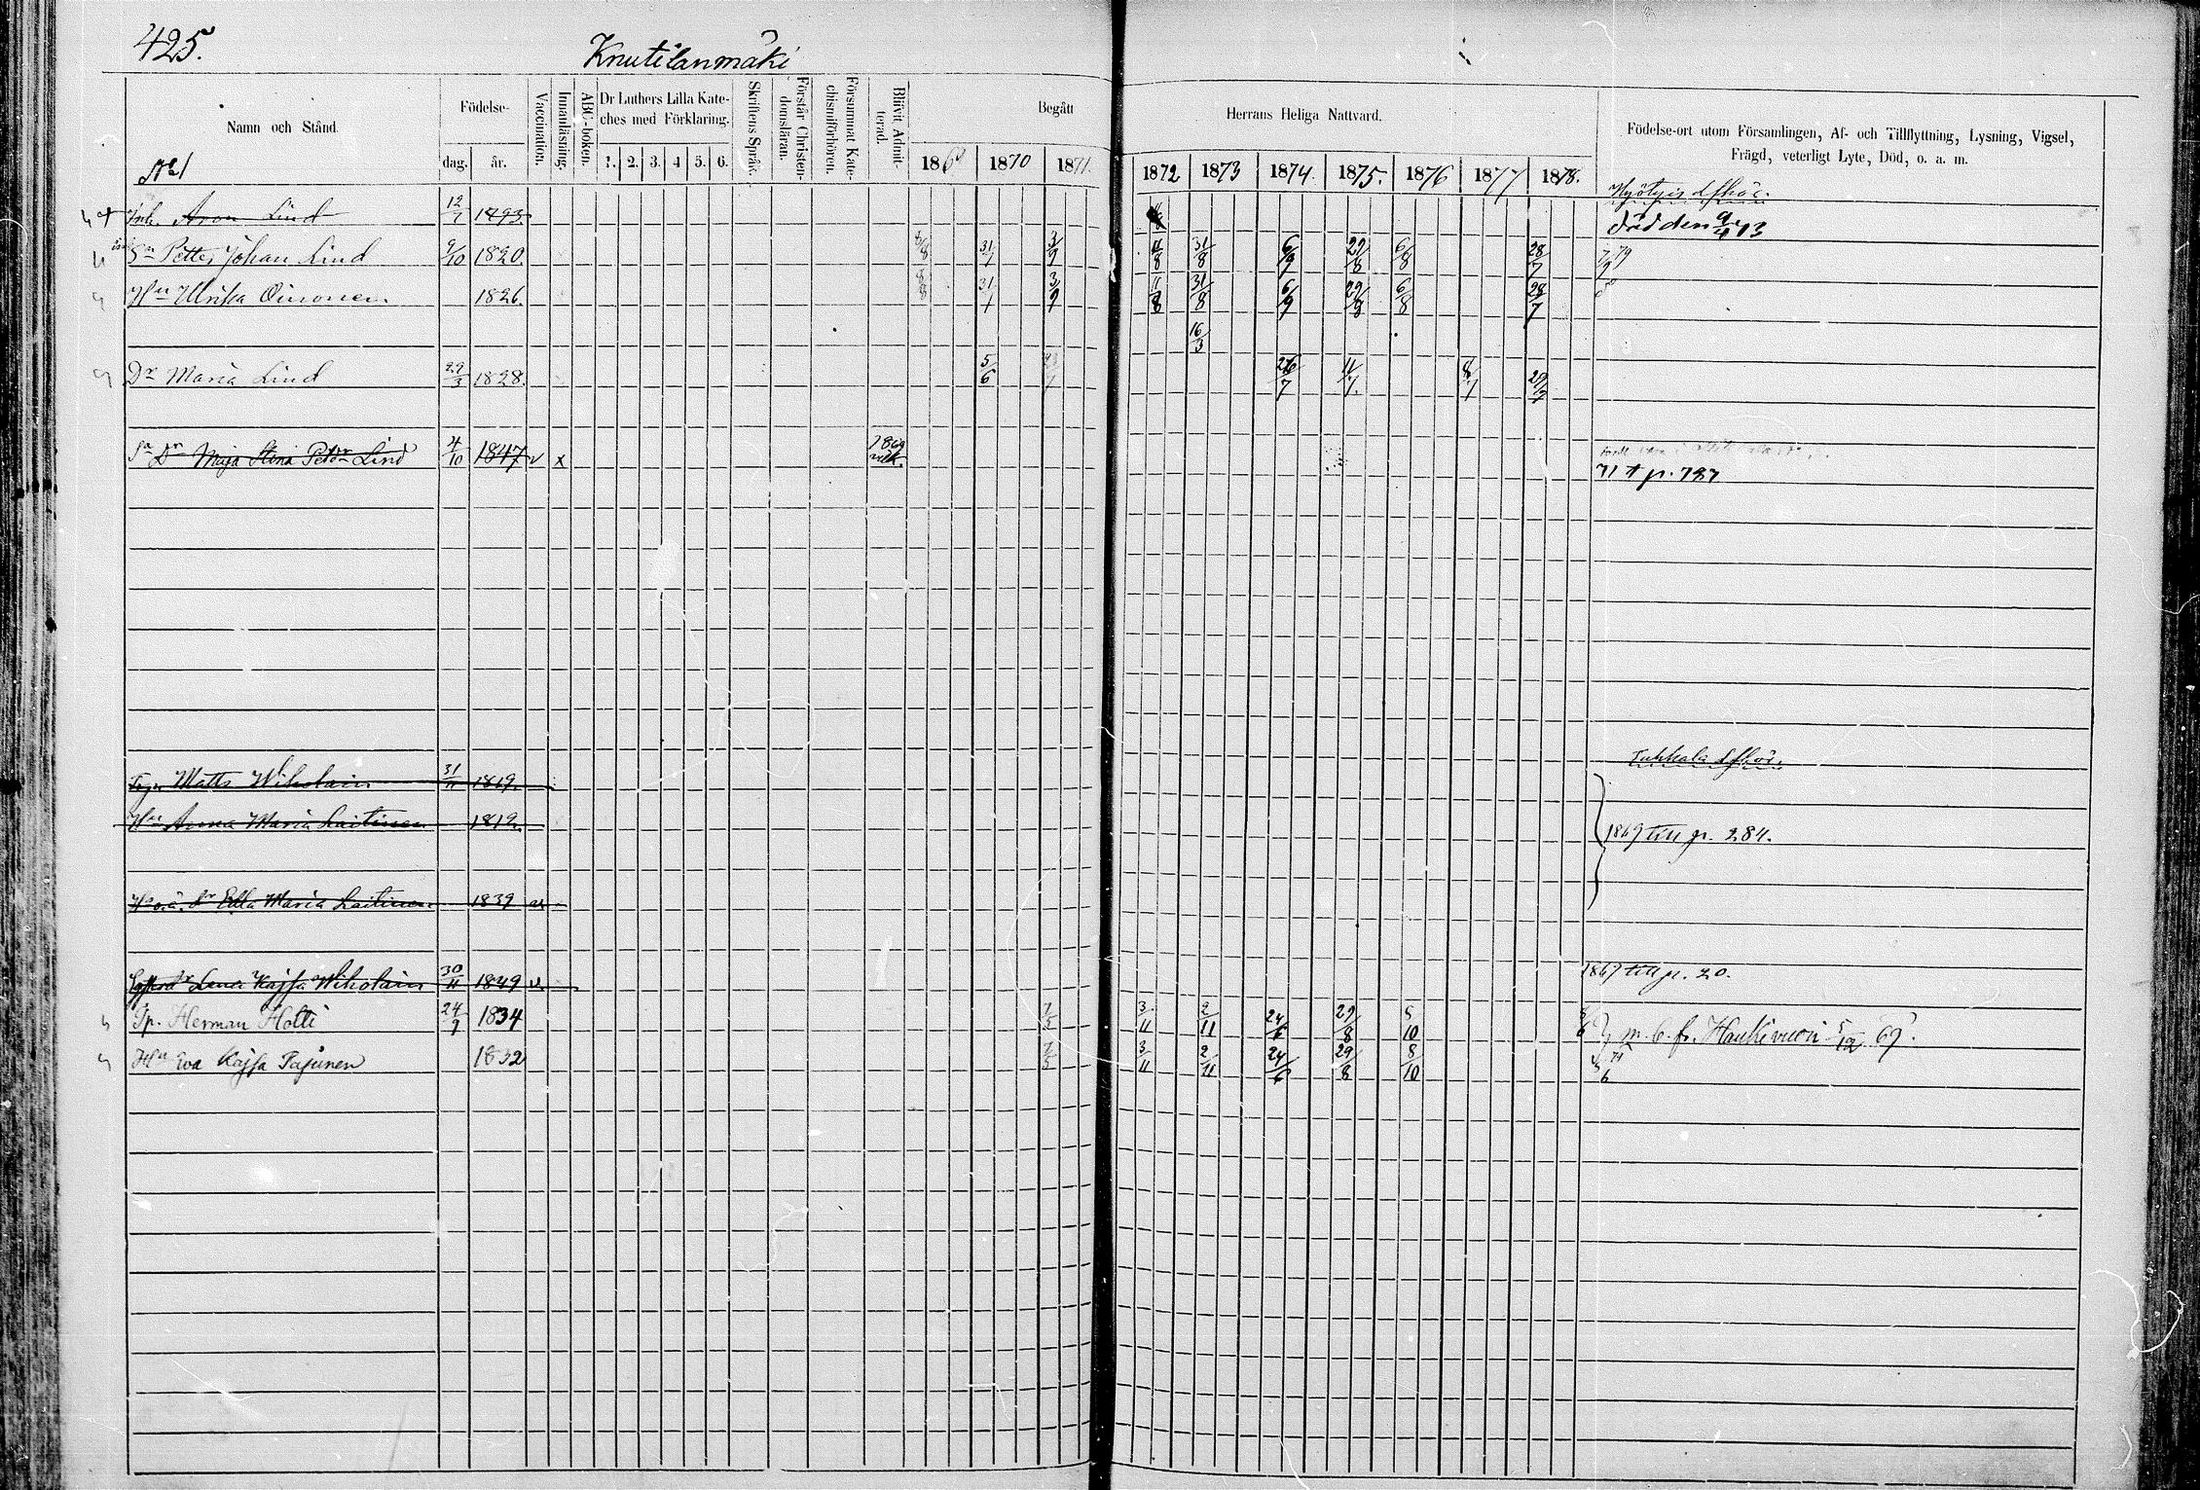 425.
Knutilanmäki
Namn och Stånd.
Födelse-
dag.
år.
Vaccination.
Innanläsning.
ABC-boken.
Dr Luthers Lilla Kate-
ches med Förklaring.
1. 2. 3. 4 5. 6.
Skriftens Språk.
Förstår Christen-
domsläran.
Försummat Kate-
chismiförhören.
Blifvit Admit-
terad.
Begått
Herrans Heliga Nattvard.
1869 1870 1871. 1872 1873 1874. 1875. 1876 1877 1878.
Födelse-ort utom Församlingen, Af- och Tillflyttning, Lysning, Vigsel,
Frägd, veterligt Lyte, Död, o. a. m.
№ 1
Aron Lind 12/7 1793 död den 9/4 73
Sn Petter Johan Lind 9/10 1820 31/7 3/9 11/8 31/8 6/9 29/8 6/8 28/7
Hu Ulrika Oinonen 1826. 8/8 31/7 3/9 11/8 31/8 6/9 29/8 6/8 28/7
16/3
Dr Maria Lind 29/3 1828 5/6 26/7 11/7. 8/7 29/7
Dr Maja Stina Petdr Lind 4/10 1847 v x 1869
71 t p. 787
Matts Wiholain 31/11 1819.
Hu Anna Maria Laitinen 1819. 1869 till p. 284.
Ella Maria Laitinen 1839
Lena Kajsa Wiholain 30/11 1849 v. 1869 till p. 20.
Tp. Herman Holti 24/9 1834 7/5 3/11 2/11 24/6 29/8 8/10 m. b. fr. Haukivuori 5/12 69.
Hu Eva Kajsa Pajunen 1832 7/5 3/11 2/11 24/6 29/8 8/10